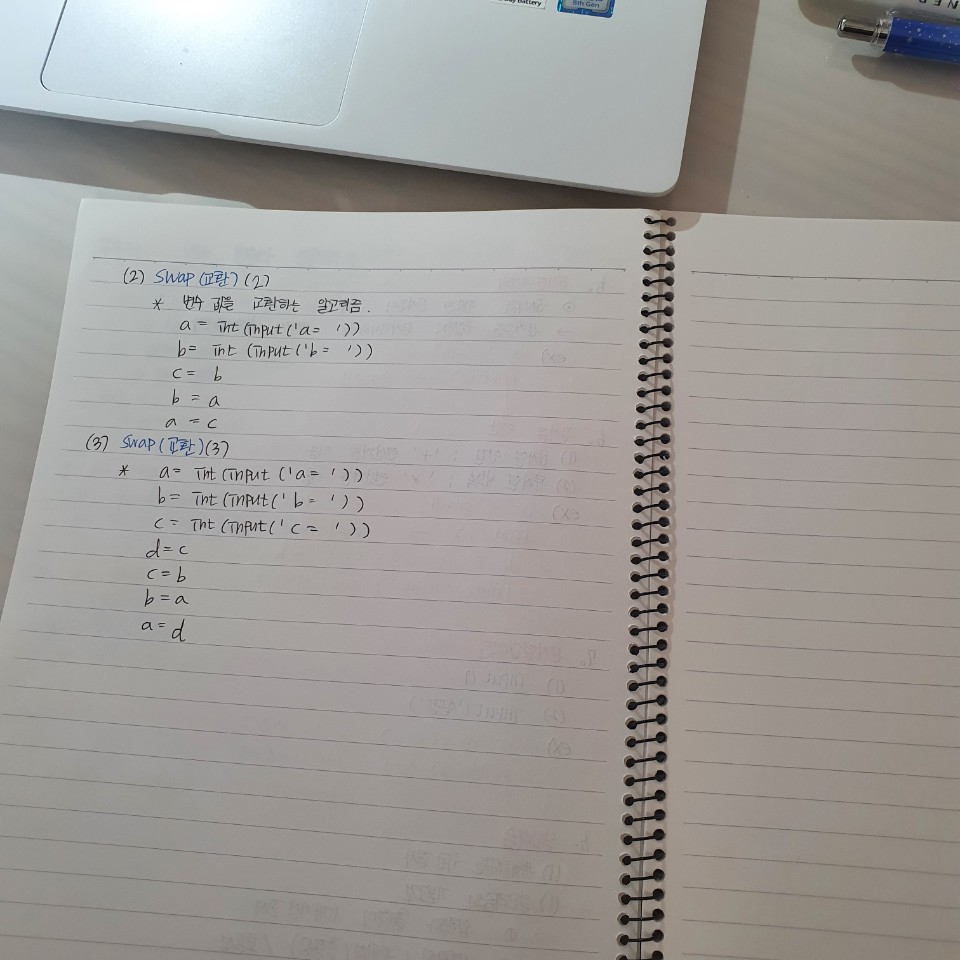 (2) Swap (교환) (2)
* 변수 값을 교환하는 알고리즘.
a = int (input ('a= '))
b= int (input ('b = '))
c = b
b = a
a = c
(3) Swap (교환) (3)
* a= int (input ('a= '))
b= int (input (' b = '))
c = int (input (' c = '))
d=c
c=b
b=a
a=d
Battery
8th Gen